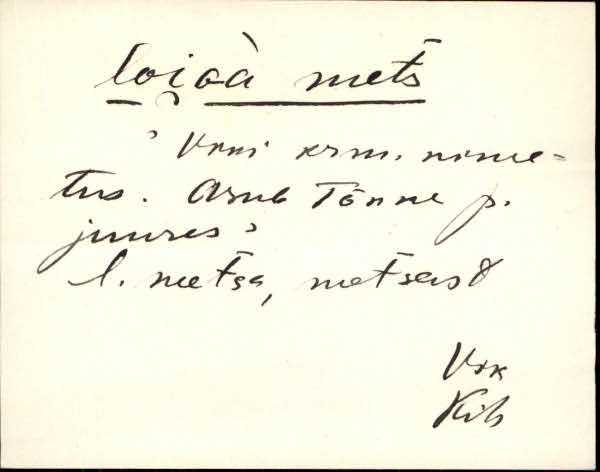 loi̯oà mets
' Vrni krm. nime-
tus. Asub Tõnne p.
juures'
l. metsa, metsas
Vrk
Kih